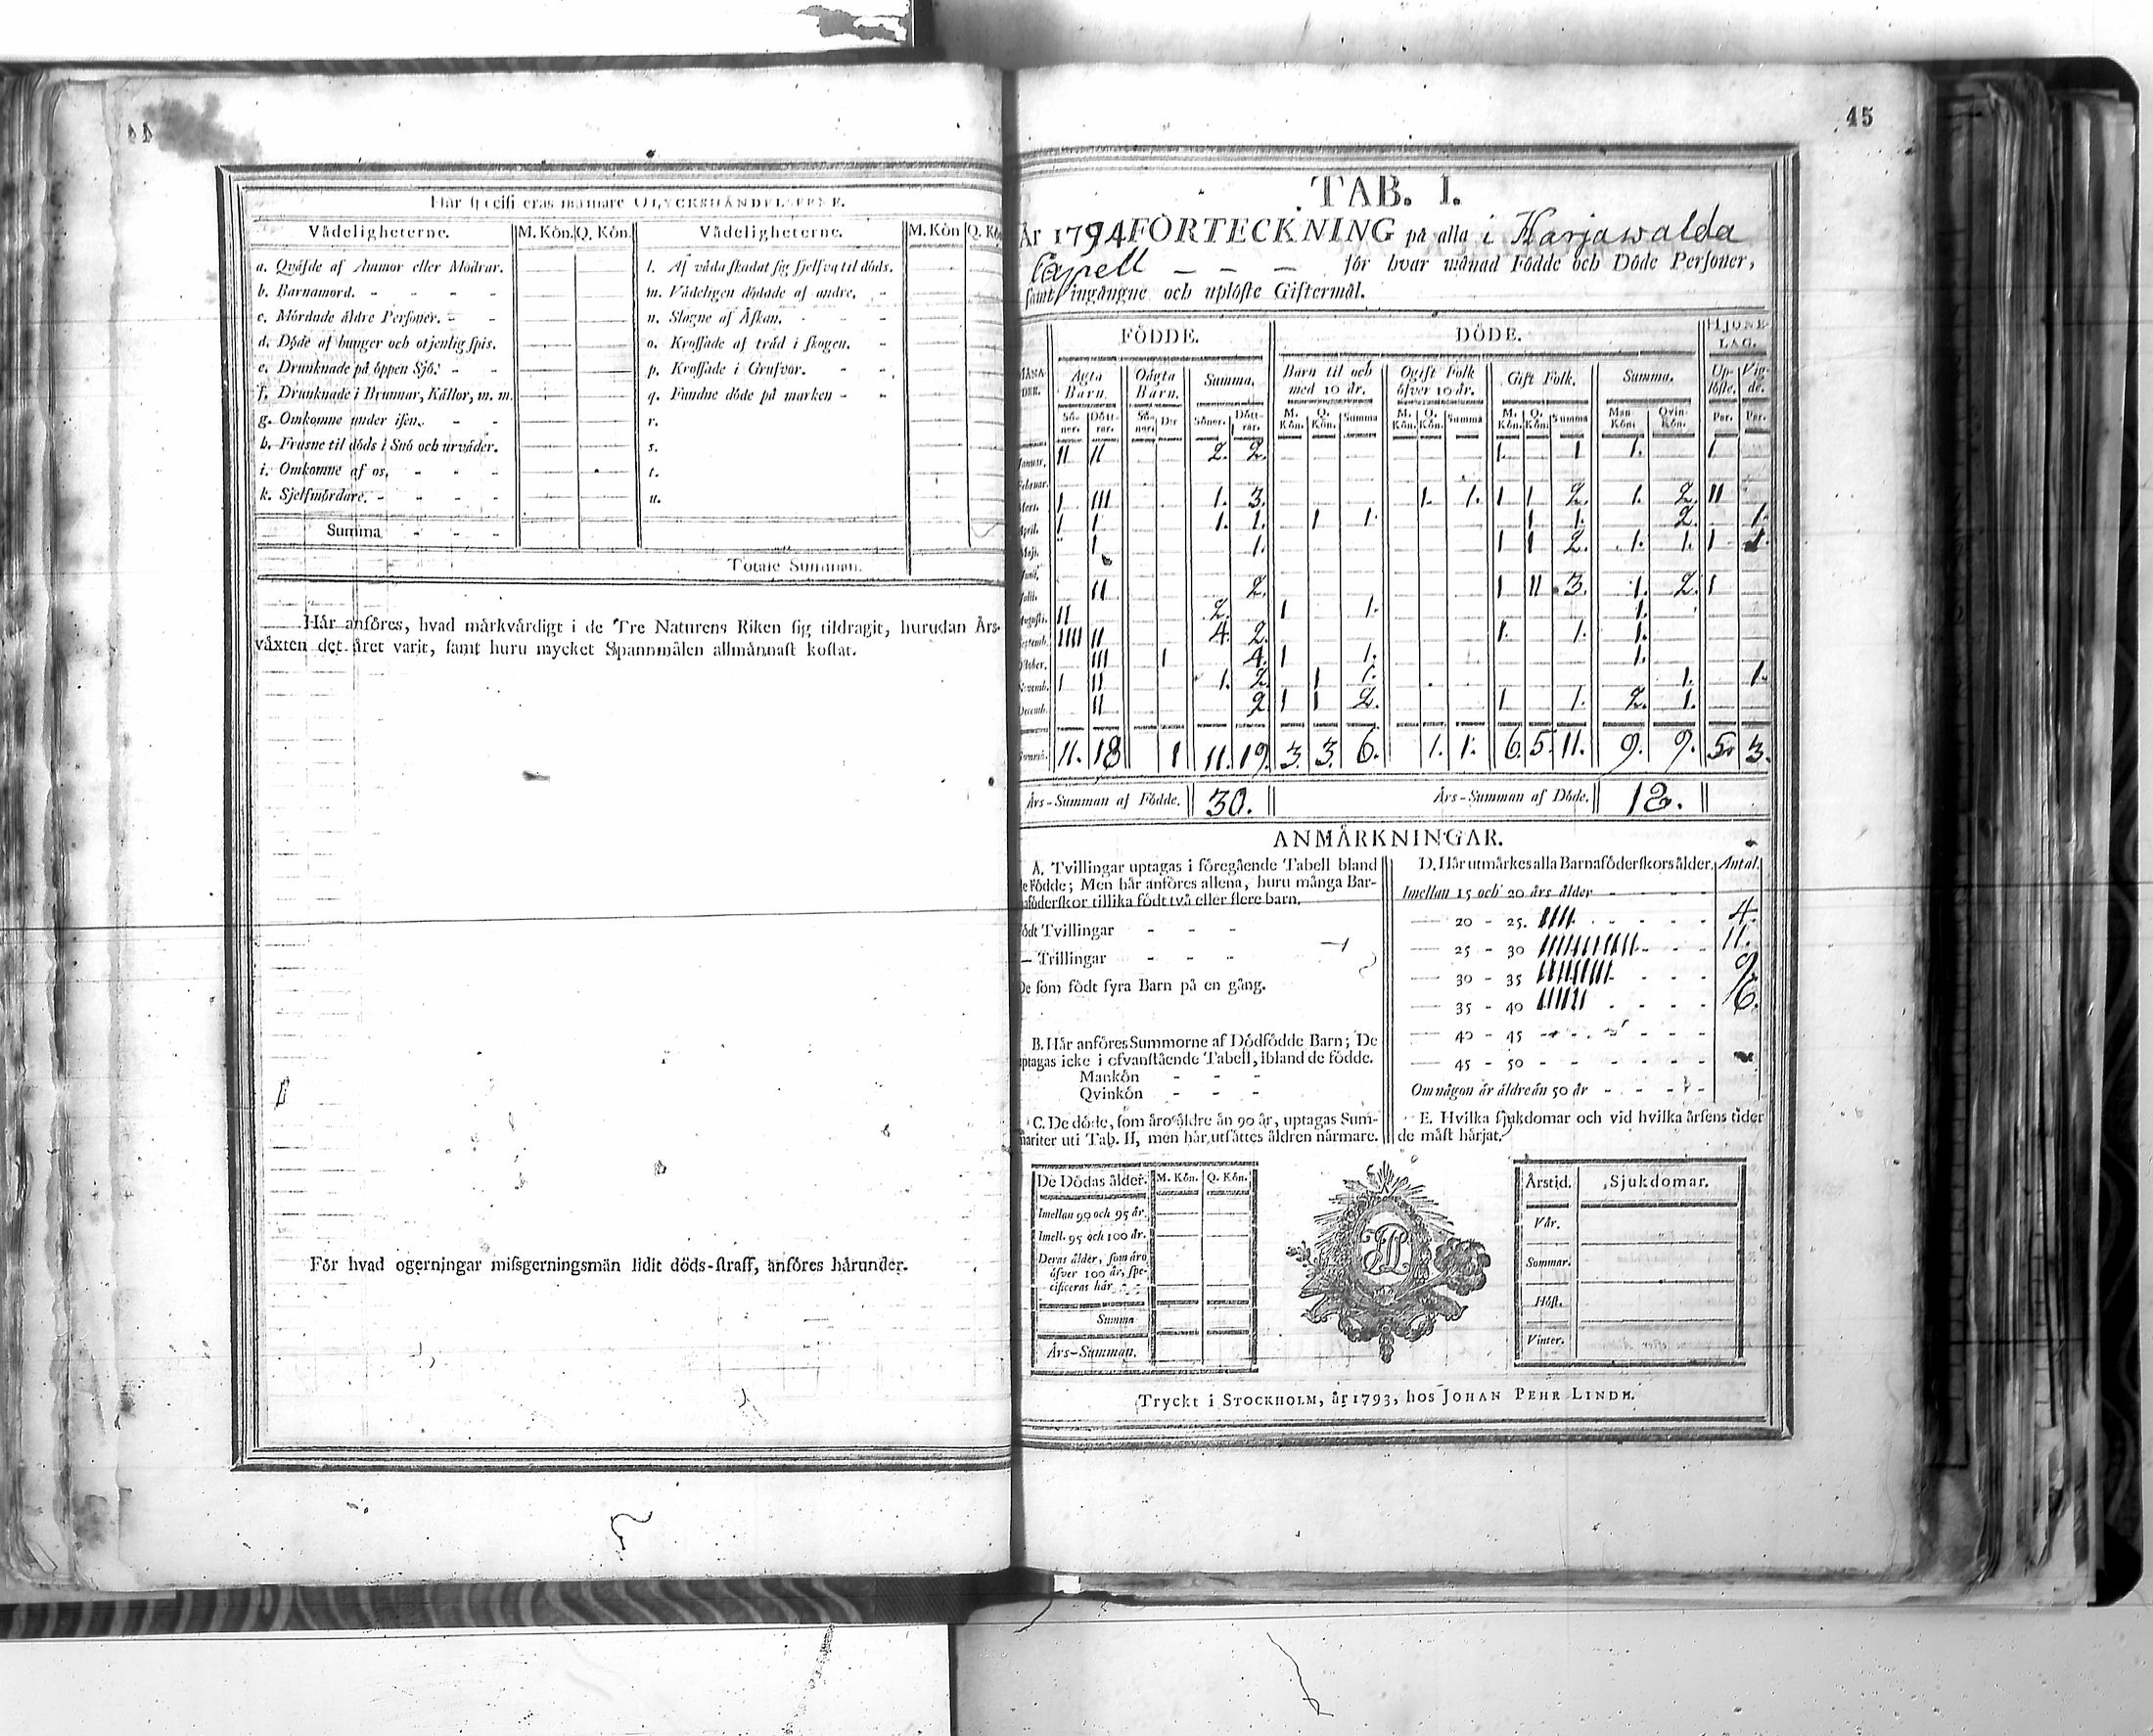 44
Här specificeras närmare OLYCKSHÄNDELSERNE.
Vådeligheterne. M. Kön. Q. Kön. Vådeligheterne. M. Kön Q. Kön
a. Qväfde af Ammor eller Mödrar. l. Af våda skadat sig sjelfva til döds.
b. Barnamord. - - - - m. Vådeligen dödade af andre. -
c. Mördade äldre Personer. - - n. Slagne af Åskan. - - -
d. Döde af hunger och otjenlig spis. o. Krossade af träd i skogen. -
e. Drunknade på öppen Sjö. - - p. Krossade i Grufvor. - -
f. Drunknade i Brunnar, Källor, m. m. q. Fundne döde på marken - -
g. Omkomne under isen. - - r.
h. Frusne til döds i Snö och urväder. s.
i. Omkomne af os. - - - t.
k. Sjelfmördare. - - - - u.
Summa - - -
Totale Summan.
Här anföres, hvad märkvärdigt i de Tre Naturens Riken sig tildragit, hurudan Års-
växten det året varit, samt huru mycket Spannmålen allmännast kostat.
För hvad ogerningar missgerningsmän lidit döds-straff, anföres härunder.
45
TAB. I.
År 1794 FÖRTECKNING på alla i Harjawalda
Capell — — — för hvar månad Födde och Döde Personer,
samt ingångne och uplöste Giftermål.
FÖDDE. DÖDE. HJONE-LAG.
MÅNADER. Ägta Barn. Oägta Barn. Summa. Barn til och med 10 år. Ogift Folk öfver 10 år. Gift Folk. Summa. Uplöste. Vigde.
Söner. Döttrar. Söner. Der Söner. Döttrar. M. Kön. Q. Kön. Summa M. Kön. Q. Kön. Summa M. Kön. Q. Kön. Summa Man Kön. Qvin Kön. Par. Par.
Januar. II II 2. 2. 1. 1 1. 1
Februar.
Mars. 1 III 1. 3. 1. 1. 1 1 2. 1. 2. II
April. 1 1 1. 1. 1 1. 1 1. 2. 1.
Maji. 1 1. 1 1 2. 1. 1. 1 1.
Junii.
Julii. II 2. 1 II 3. 1. 2. 1
Augusti. II 2. 1 1. 1.
Septemb. IIII II 4. 2. 1. 1. 1.
October. III 1 4. 1 1. 1.
Novemb. 1 II 1. 2. 1 1. 1. 1.
Decemb. II 2 1 1 2. 1 1. 2. 1.
Summa. 11. 18 1 11. 19. 3. 3. 6. 1. 1. 6. 5. 11. 9. 9. 5. 3.
Års-Summan af Födde. 30. Års-Summan af Döde. 18.
ANMÄRKNINGAR.
A. Tvillingar uptagas i föregående Tabell bland
de Födde; Men här anföres allena, huru många Bar-
naföderskor tillika födt två eller flere barn.
Födt Tvillingar - - -
— Trillingar - - -
De som födt fyra Barn på en gång.
B. Här anföres Summorne af Dödfödde Barn; De
uptagas icke i ofvanstående Tabell, ibland de födde.
Mankön - - -
Qvinkön - - -
C. De döde, som äro äldre än 90 år, uptagas Sum-
mariter uti Tab. II, men här utsättes åldren närmare.
D. Här utmärkes alla Barnaföderskors ålder. Antal.
Imellan 15 och 20 års ålder - - - -
— 20 - 25. IIII - - - - 4.
— 25 - 30 IIIIIIIIIII - - - 11.
— 30 - 35 IIIIIIIII - - - 9.
— 35 - 40 IIIIII - - - - 6.
— 40 - 45 - - - - - -
— 45 - 50 - - - - - -
Om någon är äldre än 50 år - - - -
E. Hvilka sjukdomar och vid hvilka årsens tider
de mäst härjat.
De Dödas ålder. M. Kön. Q. Kön.
Imellan 90 och 95 år.
Imell. 95 och 100 år.
Deras ålder, som äro
öfver 100 år, spe-
cificeras här - -
Summa
Års-Summan.
Årstid. Sjukdomar.
Vår.
Sommar.
Höst.
Vinter.
Tryckt i STOCKHOLM, år 1793, hos JOHAN PEHR LINDH.